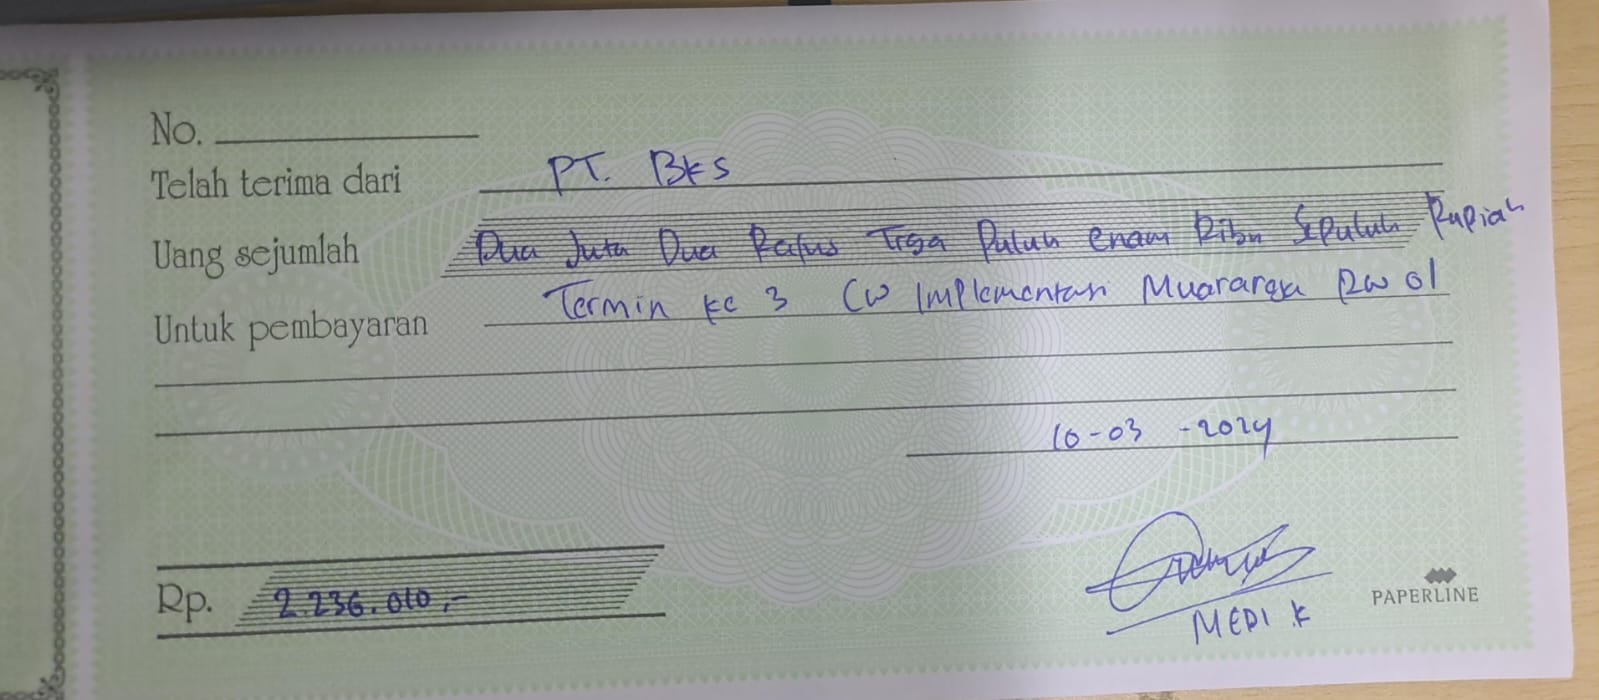 No.
Telah terima dari PT. BKS
Uang sejumlah Dua Juta Dua Ratus Tiga Puluh enam Ribu Sepuluh Rupiah
Untuk pembayaran Termin ke 3 CW Implementasi Muararaja RW 01
10-03-2024
Rp. 2.236.010,-
MEDI .K
PAPERLINE